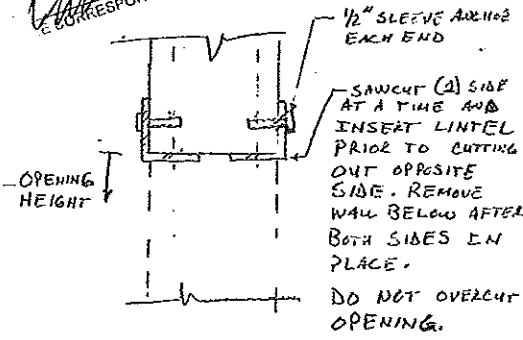 E CORRESPON
1/2" SLEEVE ANCHOR
EACH END
SAWCUT (1) SIDE
AT A TIME AND
INSERT LINTEL
PRIOR TO CUTTING
OUT OPPOSITE
SIDE. REMOVE
WALL BELOW AFTER
BOTH SIDES IN
PLACE.
DO NOT OVERCUT
OPENING.
OPENING
HEIGHT